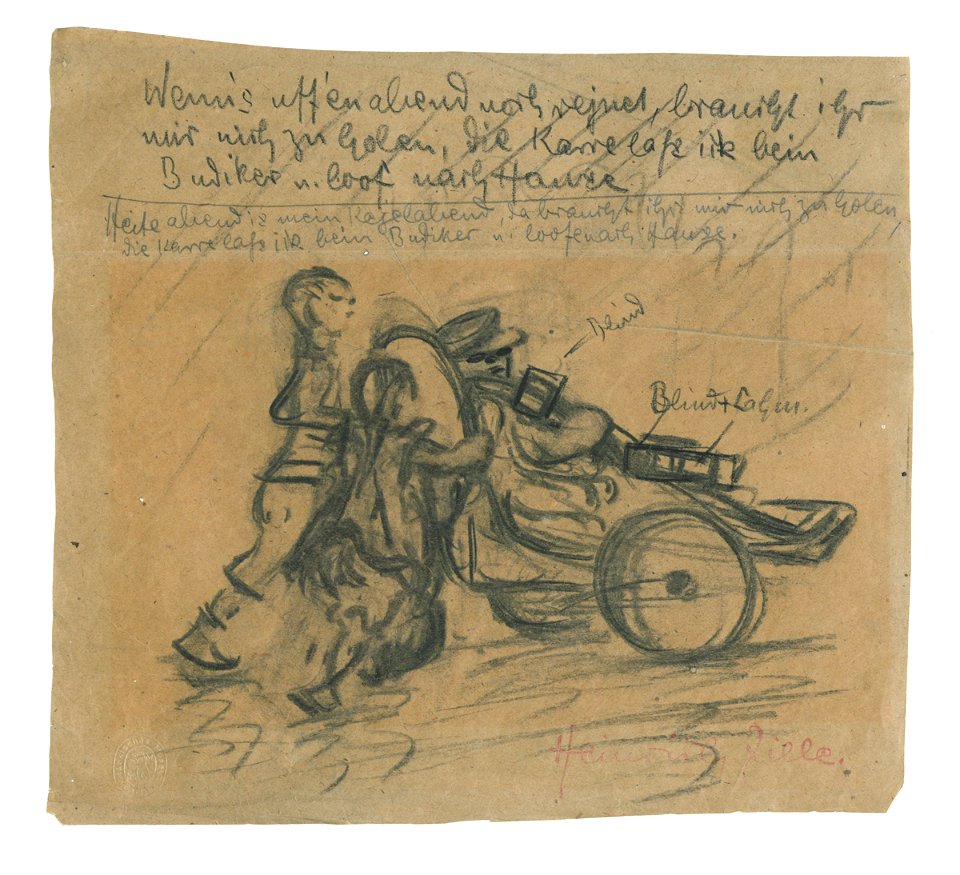 Wenn's uff'en abend noch rejnet, braucht ihr
mir nich zu holen, die Karre lass ick bein
Budiker u. loof nach Hause
Heite abend is mein Kagelabend, da braucht ihr mir nich zu holen,
die Karre lass ick bein Budiker u. loofe nach Hause.
Blind
Blind + Lahm.
Heinrich Zille.